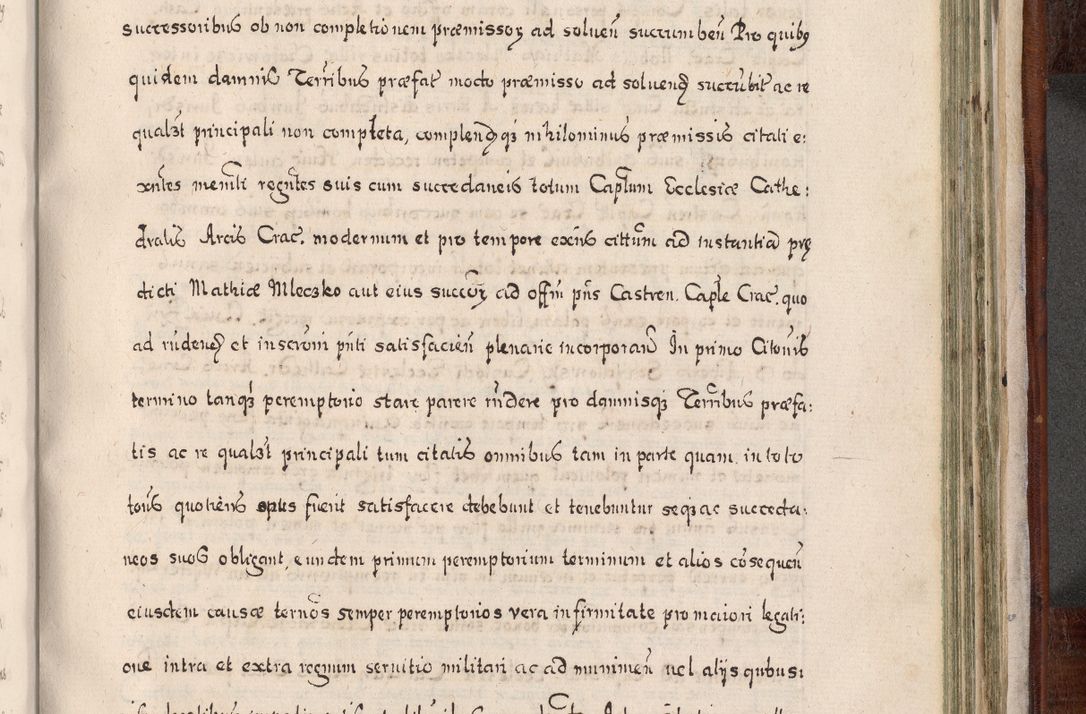 successoribus ob non completionem præmissoꝝ ad solueñ succumbeñ Pro quibꝫ
quidem damnis Terribus præfat modo præmisso ad soluenꝺ succubit ac re
qualꝫt principali non completa, complenꝺ qꝫ nihilominus præmissis citati e:
xntes memti regntes suis cum succedaneis totum Captum Ecclesiæ Cathe:
dralis Arcis Crac. modernum et pro tempore exns cittum ad instantia prę
dicti Mathiæ Mleczko aut eius succoꝝ ad offm pns Castren. Caple Crac. quo
ad rudenꝺ et inscroni pnti satisfacien plenarie incorporan In primo Citonis
termino tanqꝫ peremptorio stare parere rndere pro damnisqꝫ Terribus præfa:
tis ac re qualꝫt principali tum citatis omnibus tam in parte quam in toto
totis quotiens opus fuerit satisfacere debebunt et tenebuntur seqꝫ ac succeda:
neos suos obligant, eundem primum peremptorium terminum et alios cosequen
eiusdem causæ ternos semper peremptorios vera infirmitate pro maiori legati:
one intra et extra regnum seruitio militari ac ad munimen uel alijs qubusi